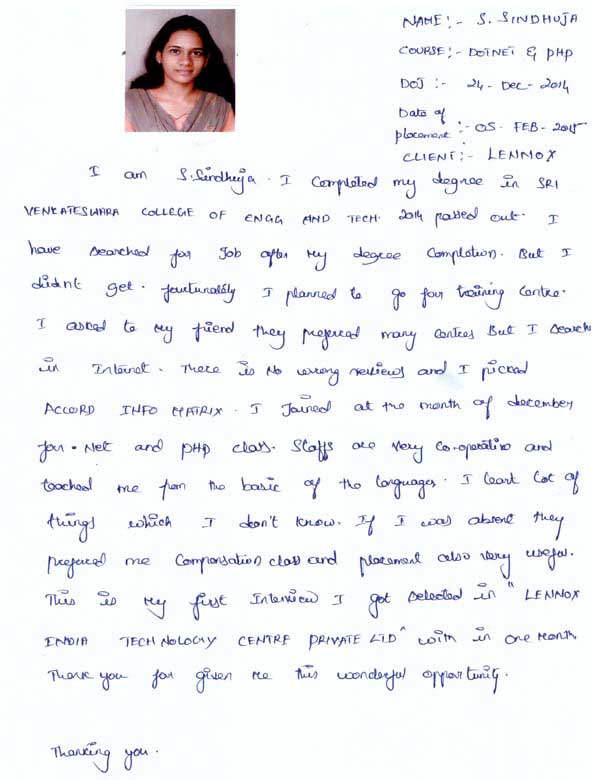 NAME:- S. SINDHUJA
COURSE:- DOTNET & PHP
DOJ :- 24-Dec-2014
Date of
placement:- 05-FEB-2015
CLIENT:- LENNOX
I am S.Sindhuja. I Completed my degree in SRI
VENKATESWARA COLLEGE OF ENGG AND TECH. 2014 passed out. I
have searched for Job after my degree completion. But I
didnt get. furtunately I planned to go for training centre.
I asked to my friend they prefered many centres But I search
in Internet. There is no wrong reviews and I picked
ACCORD INFO MATRIX. I Joined at the month of december
for .Net and PHP class. Staffs are very co-operative and
teached me from the basic of the languages. I leart lot of
things which I don't know. If I was absent they
prefered me Compensation class and placement also very useful.
This is my first Interview I got selected in "LENNOX
INDIA TECHNOLOGY CENTRE PRIVATE LTD" with in one month
Thank you for given me this wonderful opportunity.
Thanking you.